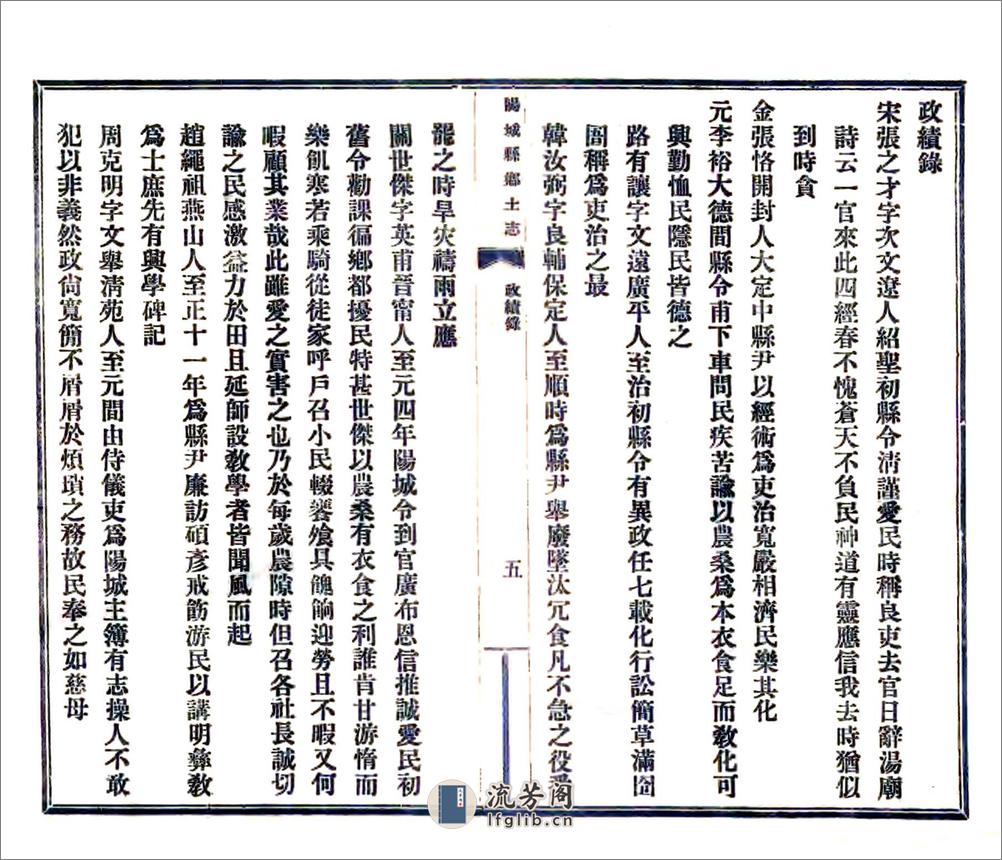 政績錄
宋張之才字次文遼人紹聖初縣令清謹愛民時稱良吏去官日辭湯廟
詩云一官來此四經春不愧蒼天不負民神道有靈應信我去時猶似
到時貪
金張恪開封人大定中縣尹以經術爲吏治寬嚴相濟民樂其化
元李裕大德間縣令甫下車問民疾苦諭以農桑爲本衣食足而敎化可
興勤恤民隱民皆德之
路有讓字文遠廣平人至治初縣令有異政任七載化行訟簡草滿囹
圄稱爲吏治之最
韓汝弼字良輔保定人至順時爲縣尹舉廢墜汰冗食凡不急之役爲
陽城縣鄉土志
政績錄
五
罷之時旱灾禱雨立應
關世傑字英甫晉甯人至元四年陽城令到官廣布恩信推誠愛民初
舊令勸課徧鄉都擾民特甚世傑以農桑有衣食之利誰肯甘游惰而
樂飢寒若乘騎從徒家呼戶召小民輟饔飧具餽餉迎勞且不暇又何
暇顧其業哉此雖愛之實害之也乃於每歲農隙時但召各社長誠切
諭之民感激益力於田且延師設敎學者皆聞風而起
趙繩祖燕山人至正十一年爲縣尹廉訪碩彥戒飭游民以講明彝敎
爲士庶先有興學碑記
周克明字文舉清苑人至元間由侍儀吏爲陽城主簿有志操人不敢
犯以非義然政尙寬簡不屑屑於煩瑣之務故民奉之如慈母
流芳閣
lfglib.cn